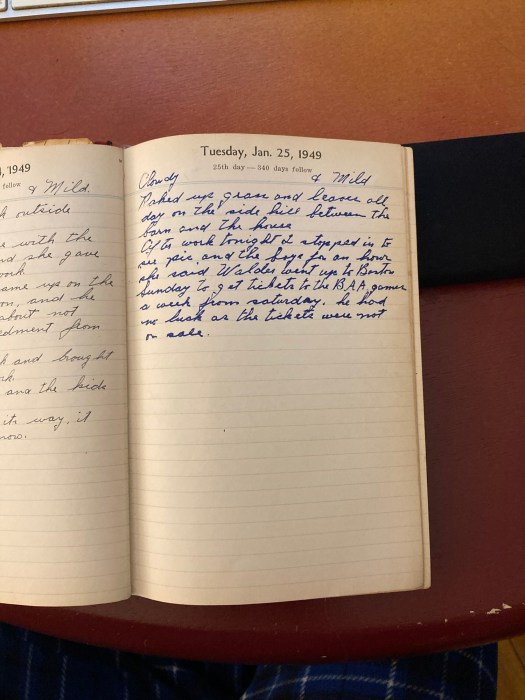 , 1949
follow
& Mild.
k outside
e with the
nd she gave
ork
ame up on the
on, and he
about not
edment from
k and brought
rk.
and the kids
its way, it
now.
Tuesday, Jan. 25, 1949
25th day — 340 days follow
Cloudy & Mild
Raked up grass and leaves all
day on the side hill between the
barn and the house
After work tonight I stopped in to
see pic, and the boys for an hour
she said Walder went up to Boston
Sunday to get tickets to the B.A.A. games
a week from saturday. he had
no luck as the tickets were not
on sale.